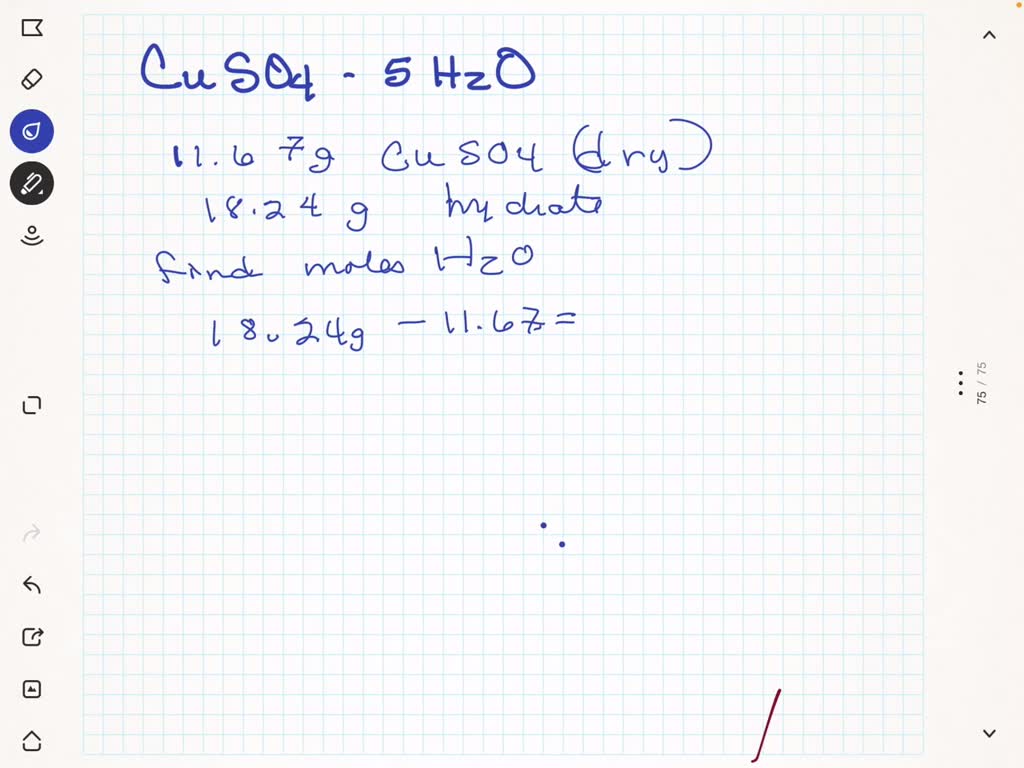 CuSO4 - 5 H2O
11.67g CuSO4 (dry)
18.24 g hydrate
find moles H2O
18.24g - 11.67 =
75 / 75